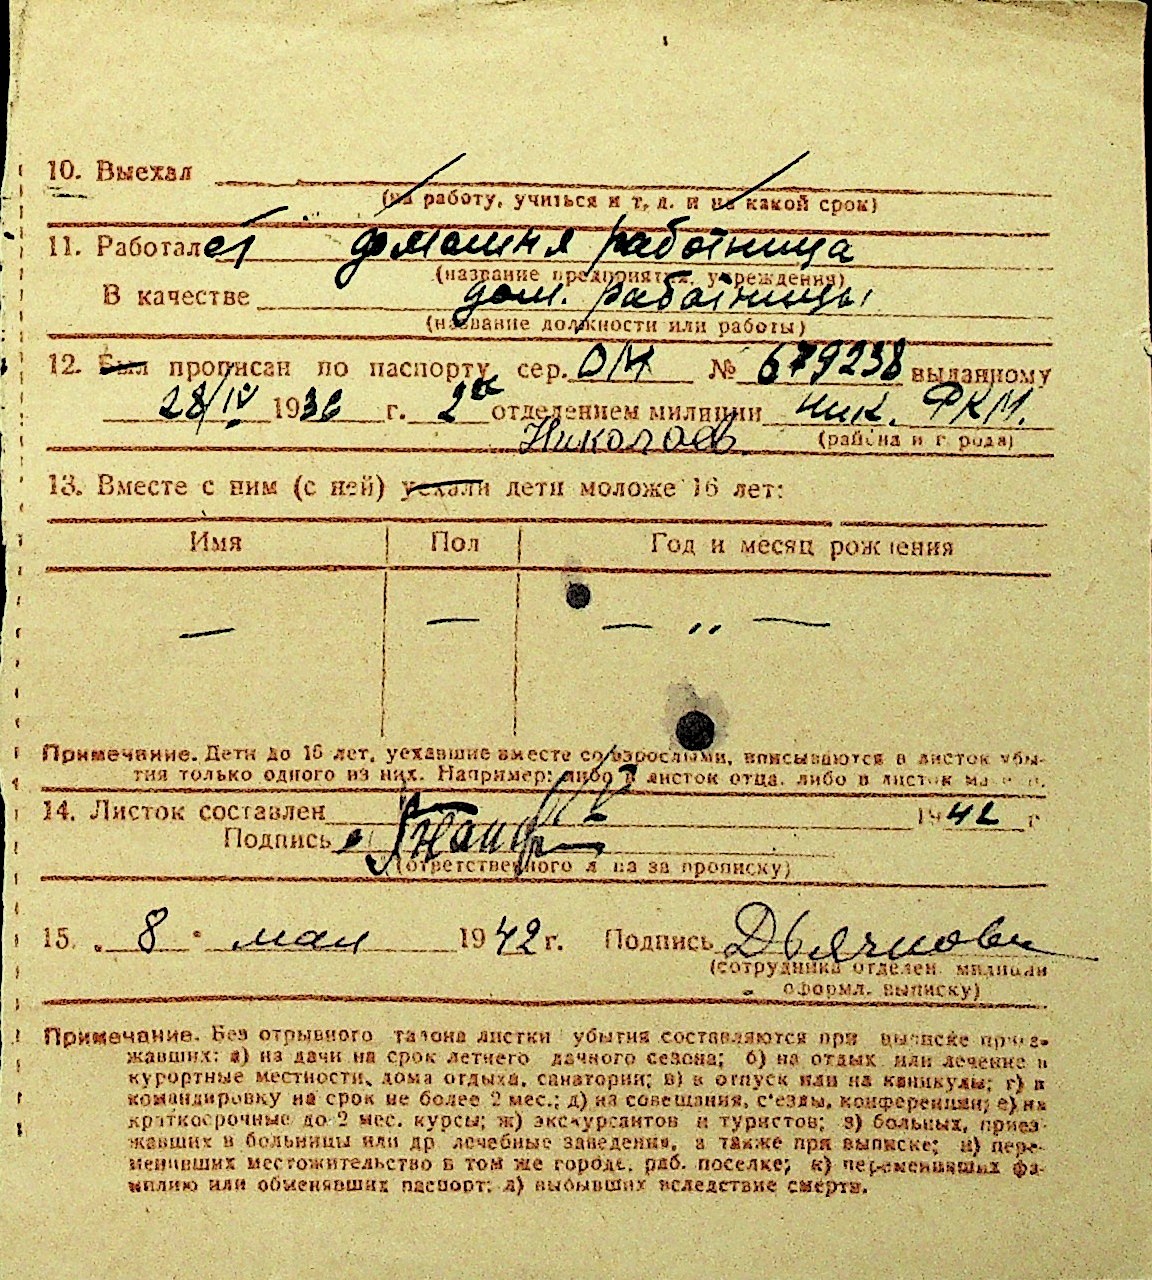 10. Выехал
(на работу, учиться и т. д. и на какой срок)
11. Работает домашня работница
(название предприятия, учреждения)
В качестве дом. работницы
(название должности или работы)
12. Был прописан по паспорту сер. ОМ № 679238 выданному
28/IV 1936 г. 2ое отделением милиции ник. ФКМ.
Николаев. (района и города)
13. Вместе с ним (с ней) уехали дети моложе 16 лет:
Имя Пол Год и месяц рождения
— — — „ —
Примечание. Дети до 16 лет, уехавшие вместе со взрослыми, вписываются в листок убы-
тия только одного из них. Например: либо в листок отца, либо в листок матери.
14. Листок составлен 1942 г
Подпись
(ответственного лица за прописку)
15. 8 мая 1942 г. Подпись Дьячкова
(сотрудника отделен. милиции
оформл. выписку)
Примечание. Без отрывного талона листки убытия составляются при выписке приез-
жавших: а) из дачи на срок летнего дачного сезона; б) на отдых или лечение в
курортные местности, дома отдыха, санатории; в) в отпуск или на каникулы; г) в
командировку на срок не более 2 мес.; д) на совещания, с'езды, конференции; е) на
краткосрочные до 2 мес. курсы; ж) экскурсантов и туристов; з) больных, приез-
жавших в больницы или др лечебные заведения, а также при выписке; и) пере-
менивших местожительство в том же городе, раб. поселке; к) переменивших фа-
милию или обменявших паспорт; л) выбывших вследствие смерти.